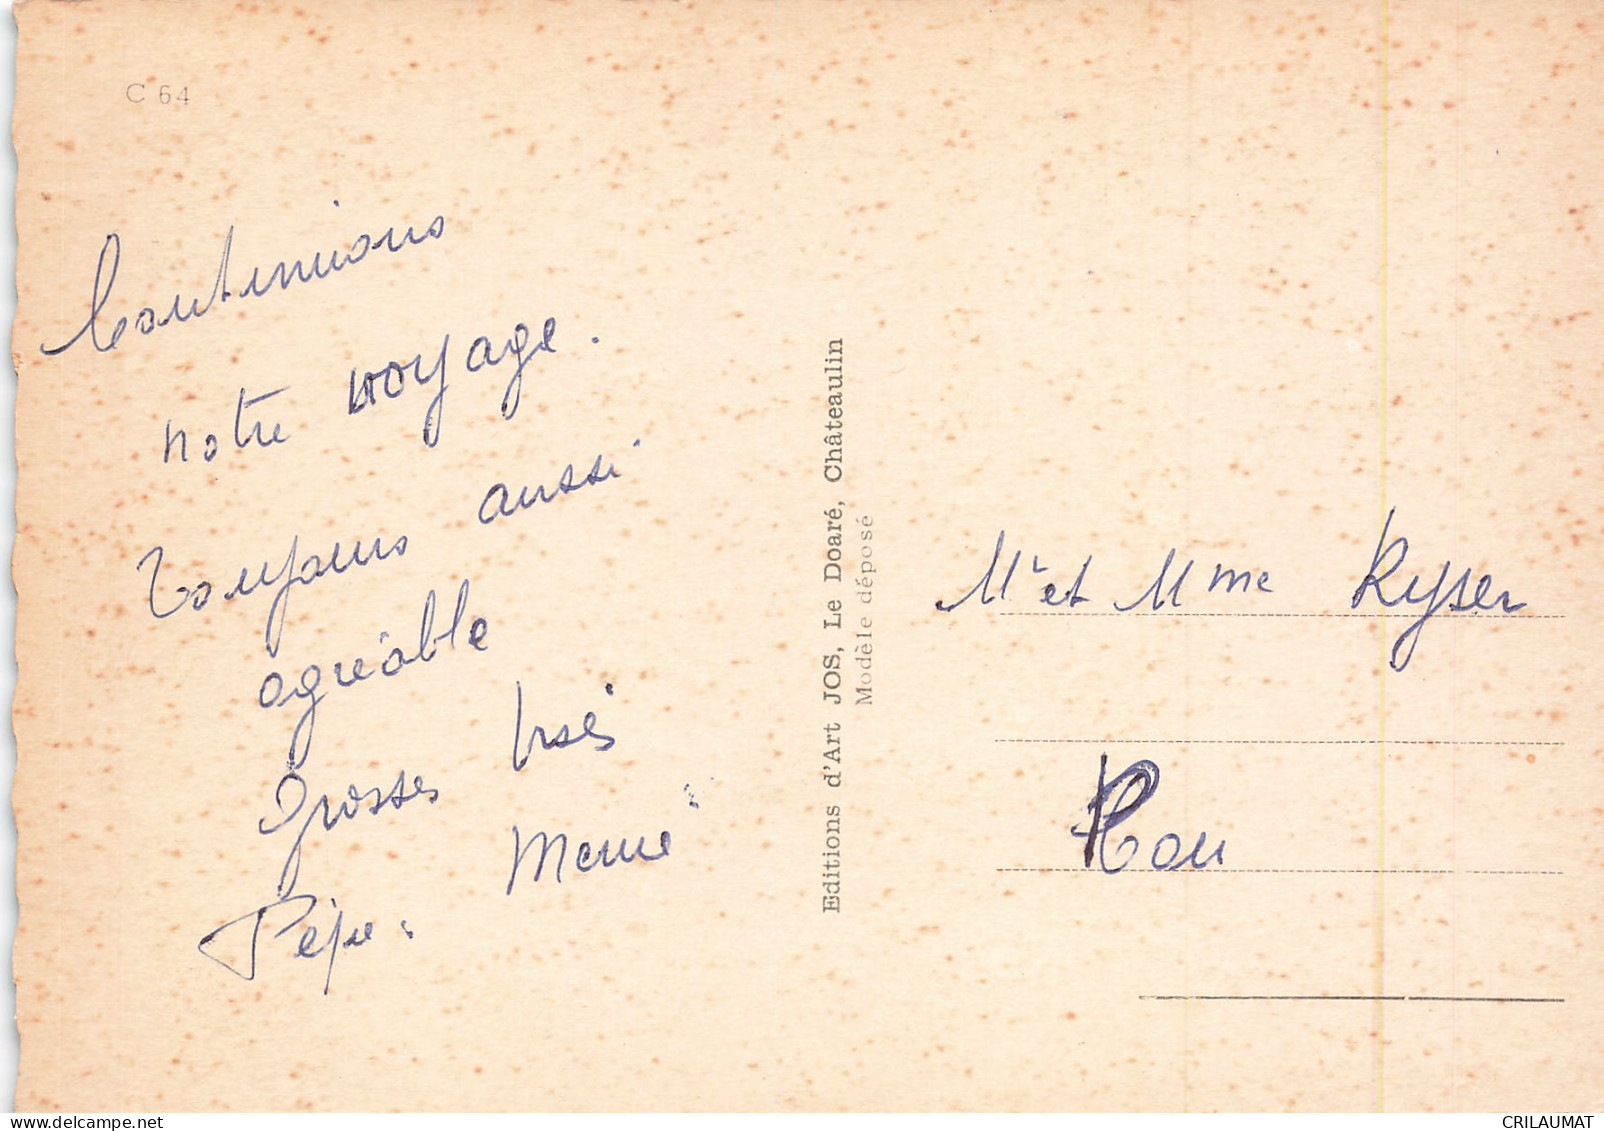 C 64
Continuons
notre voyage.
Toujours aussi
agréable
Grosses bises
Pépé. Mémé
Editions d'Art JOS, Le Doaré, Châteaulin
Modèle déposé
Mr et Mme Ryser
delcampe.net
CRILAUMAT